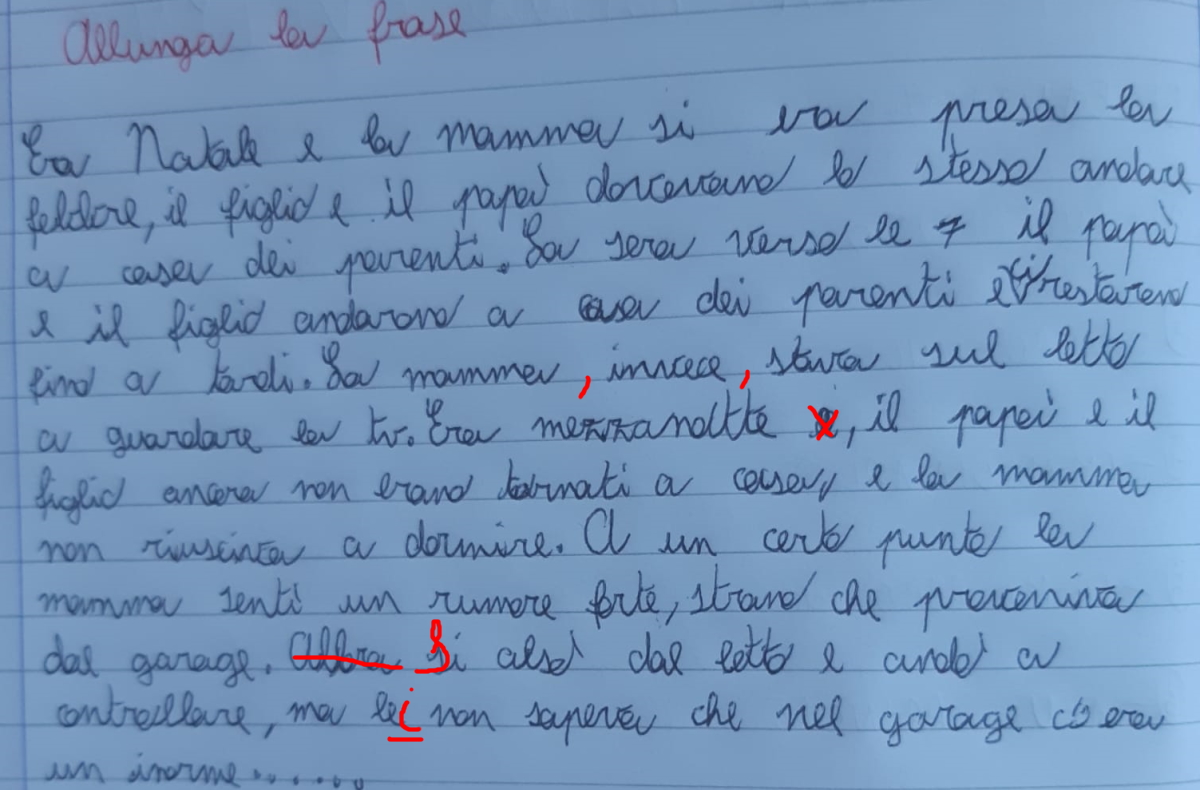 Allunga la frase
Era Natale e la mamma si era presa la
feldore, il figlio e il papà dovevano lo stesso andare
a casa dei parenti. La sera verso le 7 il papà
e il figlio andarono a casa dei parenti e ci restarono
fino a tardi. La mamma, invece, stava sul letto
a guardare la tv. Era mezzanotte, il papà e il
figlio ancora non erano tornati a casa, e la mamma
non riusciva a dormire. A un certo punto la
mamma sentì un rumore forte, strano che proveniva
dal garage. Allora Si alzò dal letto e andò a
controllare, ma lei non sapeva che nel garage c'era
un inorme......